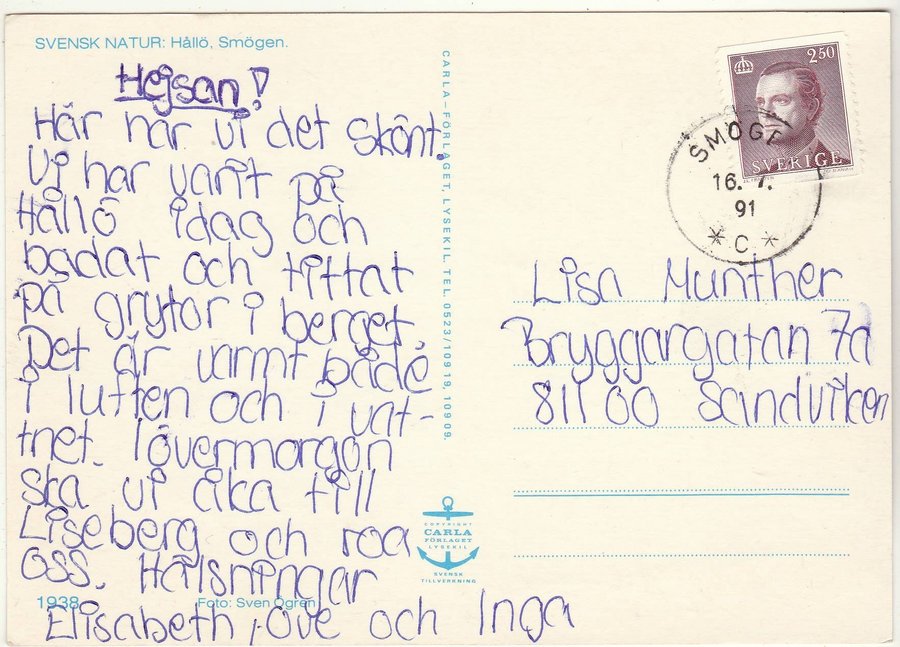 SVENSK NATUR: Hållö, Smögen.
Hejsan!
Här har vi det skönt.
Vi har varit på
Hållö idag och
badat och tittat
på grytor i berget.
Det är varmt både
i luften och i vat-
tnet. Iövermorgon
ska vi åka till
Liseberg och roa
oss. Hälsningar
Elisabeth, Ove och Inga
1938 Foto: Sven Ögren
CARLA-FÖRLAGET, LYSEKIL. TEL. 0523/109 19, 109 09.
COPYRIGHT
CARLA
FÖRLAGET
LYSEKIL
SVENSK
TILLVERKNING
2.50
SVERIGE
SMÖGE
16. 7.
91
* C *
Lisa Munther
Bryggargatan 7a
811 00 Sandviken